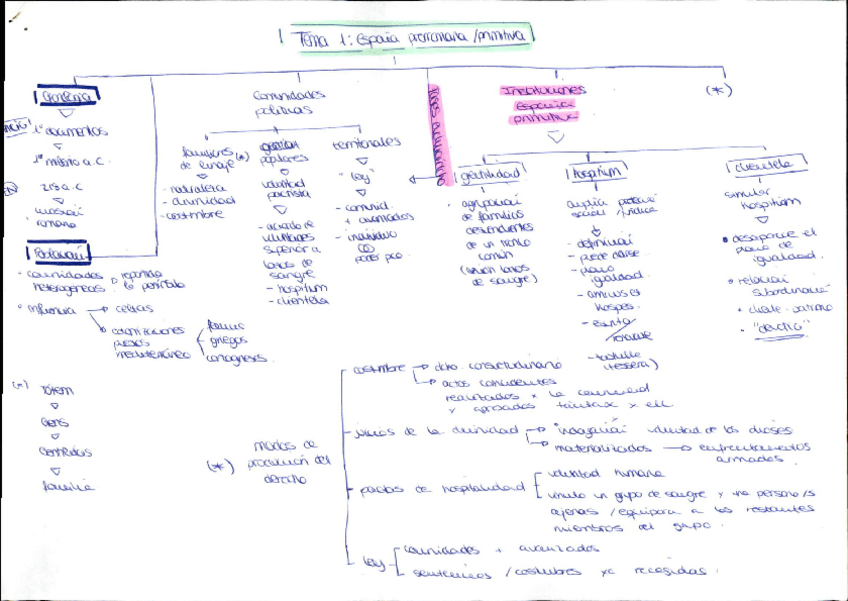 Tema 1: España prerromana/primitiva
Comunidades
políticas
Instituciones
España
primitiva
(*)
1º documentos
1º milenio a.C.
218 a.C
romana
familiares (*)
de linaje
- naturaleza
- divinidad
- costumbre
populares
voluntad
pactista
- acuerdo de
voluntades
superior a
lazos de
sangre
- hospitium
- clientela
territoriales
"ley"
- comunid.
+ avanzadas
- individuo
poder pco
gentilidad
agrupación
de familias
descendientes
de un tronco
común
(unión lazos
de sangre)
hospitium
- definición
- plano
igualdad
hospes.
- escrita
- tabulilla
(tessera)
clientela
similar
hospitium
desaparece el
plano de
igualdad.
relación
subordinación
cliente-patrono
"devotio"
Población
- comunidades
heterogéneas
península
Influencia → celtas
colonizaciones
pueblos
mediterráneo
griegos
cartagineses.
(*) Tótem
Gens
Gentilidades
familia
(*) modos de
producción del
derecho
costumbre → dcho consuetudinario
actos concluyentes
realizados x la comunidad
y aprobados x ell
juicios de la divinidad → "indagación" voluntad de los dioses
materializados → enfrentamientos
armados.
pactos de hospitalidad
voluntad humana
vincula un grupo de sangre y una persona/s
ajenas /equipara a los restantes
miembros del grupo.
ley
comunidades + avanzadas
sentencias /costumbres ya recogidas.